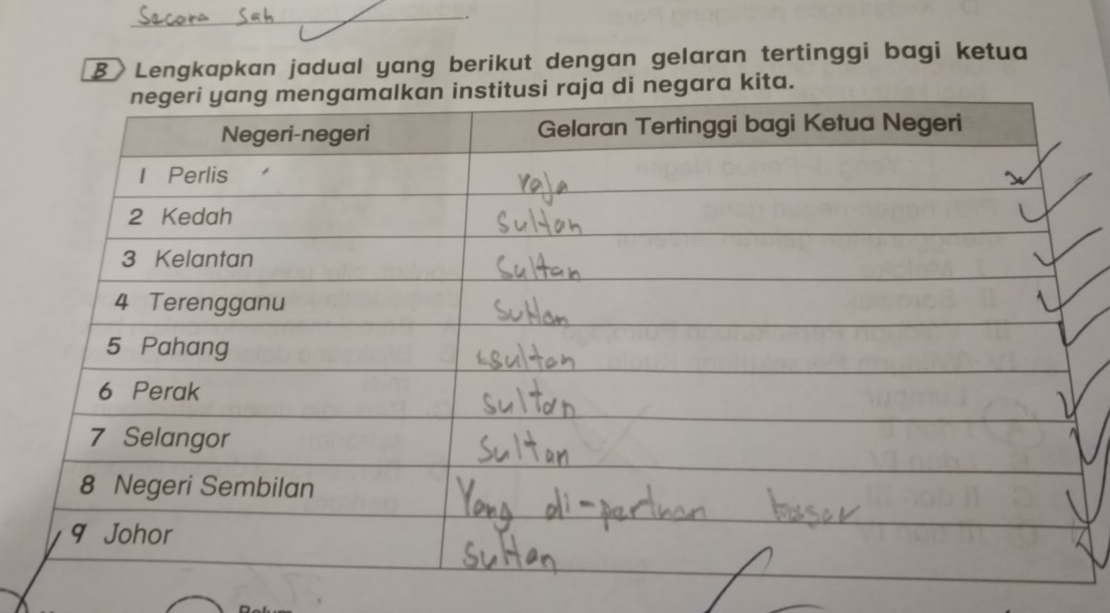 Secara Sah
B Lengkapkan jadual yang berikut dengan gelaran tertinggi bagi ketua
negeri yang mengamalkan institusi raja di negara kita.
Negeri-negeri Gelaran Tertinggi bagi Ketua Negeri
1 Perlis raja
2 Kedah Sultan
3 Kelantan Sultan
4 Terengganu Sultan
5 Pahang sultan
6 Perak sultan
7 Selangor Sultan
8 Negeri Sembilan Yang di-pertuan besar
9 Johor Sultan